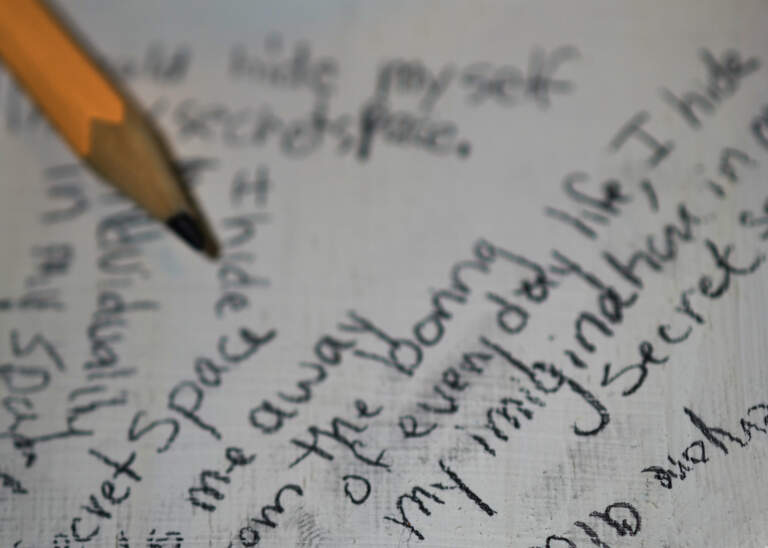 hide myself
secret space.
in my space
individuality
# hide
secret space
me away
from the boring
of everyday life, I hide
my imigination in m
secret s